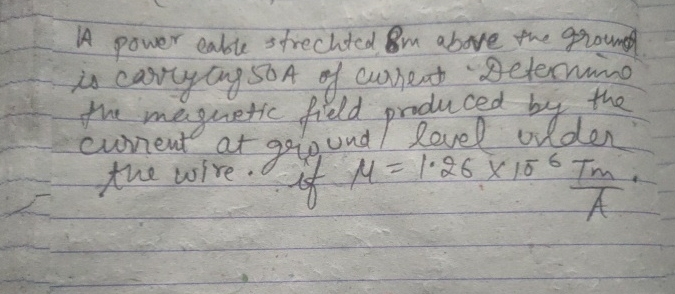 A power cable strechted 8m above the ground
is carrying 50A of current. Determine
the magnetic field produced by the
current at ground level under
the wire. if M = 1.26 X 10⁻⁶ Tm/A.